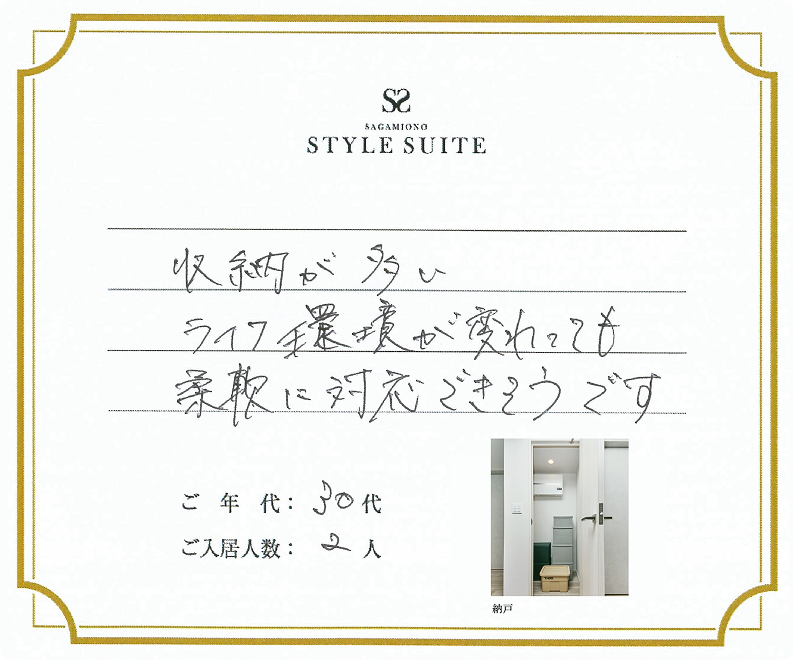 SS
SAGAMIONO
STYLE SUITE
収納が多い
ライフ環境が変わっても
柔軟に対応できそうです
ご年代：30代
ご入居人数：2人
納戸